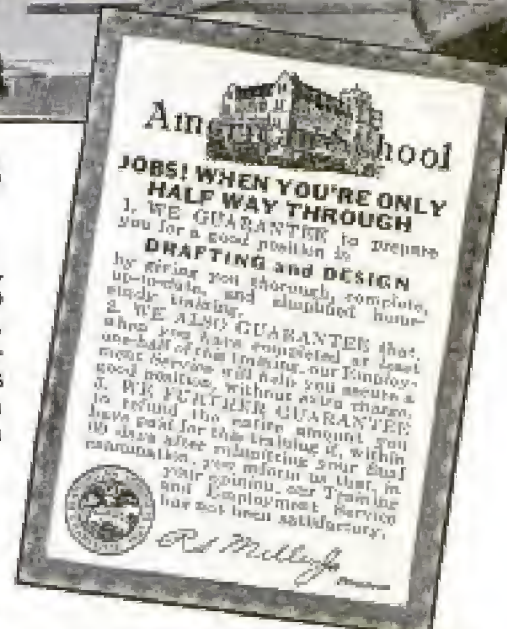 American School
JOBS! WHEN YOU'RE ONLY
HALF WAY THROUGH
1. WE GUARANTEE to prepare
you for a good position in
DRAFTING and DESIGN
by giving you thorough, complete,
up-to-date, and simplified home-
study training.
2. WE ALSO GUARANTEE that,
when you have completed at least
one-half of this training, our Employ-
ment Service will help you secure a
good position, without extra charge.
3. WE FURTHER GUARANTEE
to refund the entire amount you
have paid for this training if, within
days after submitting your final
examination, you inform us that, in
your opinion, our Training
and Employment Service
has not been satisfactory.